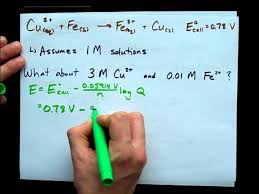 Cu²⁺(aq) + Fe(s) → Fe²⁺(aq) + Cu(s) E°cell = 0.78 V
↳ Assumes 1 M solutions
What about 3 M Cu²⁺ and 0.01 M Fe²⁺?
E = E°cell − 0.05914 V / n log Q
= 0.78 V −